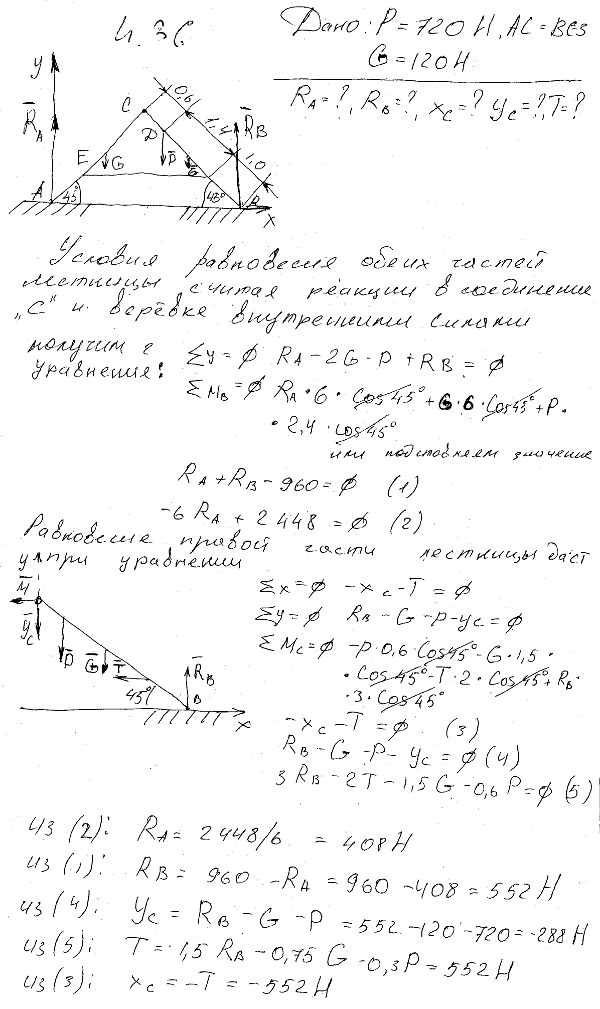 4.36
Дано: P = 720 Н, AC = BC
G = 120 Н
R_A = ?, R_B = ?, x_C = ? y_C = ?, T = ?
y
R̄_A
C
0,6
D
1,4
R̄_B
E
G
P̄
1,0
A
45°
45°
B
x
Условия равновесия обеих частей
лестницы считая реакции в соединение
„С" и верёвке внутренними силами
получим 2
уравнения:
Σy = ϕ R_A − 2G − P + R_B = ϕ
ΣM_B = ϕ R_A · 6 · Cos 45° + G · 6 · Cos 45° + P ·
· 2,4 · cos 45°
или подставляем значение
R_A + R_B − 960 = ϕ (1)
−6 R_A + 2448 = ϕ (2)
Равновесие правой части лестницы даст
три уравнении
y
M̄
Ȳ_C
P̄
Ḡ
T̄
R̄_B
45°
B
x
Σx = ϕ −x_C − T = ϕ
Σy = ϕ R_B − G − P − y_C = ϕ
ΣM_C = ϕ −P · 0,6 · Cos 45° − G · 1,5 ·
· Cos 45° − T · 2 · Cos 45° + R_B ·
· 3 · Cos 45°
−x_C − T = ϕ (3)
R_B − G − P − y_C = ϕ (4)
3 R_B − 2T − 1,5 G − 0,6 P = ϕ (5)
из (2): R_A = 2448/6 = 408 Н
из (1): R_B = 960 − R_A = 960 − 408 = 552 Н
из (4): y_C = R_B − G − P = 552 − 120 − 720 = −288 Н
из (5): T = 1,5 R_B − 0,75 G − 0,3 P = 552 Н
из (3): x_C = −T = −552 Н